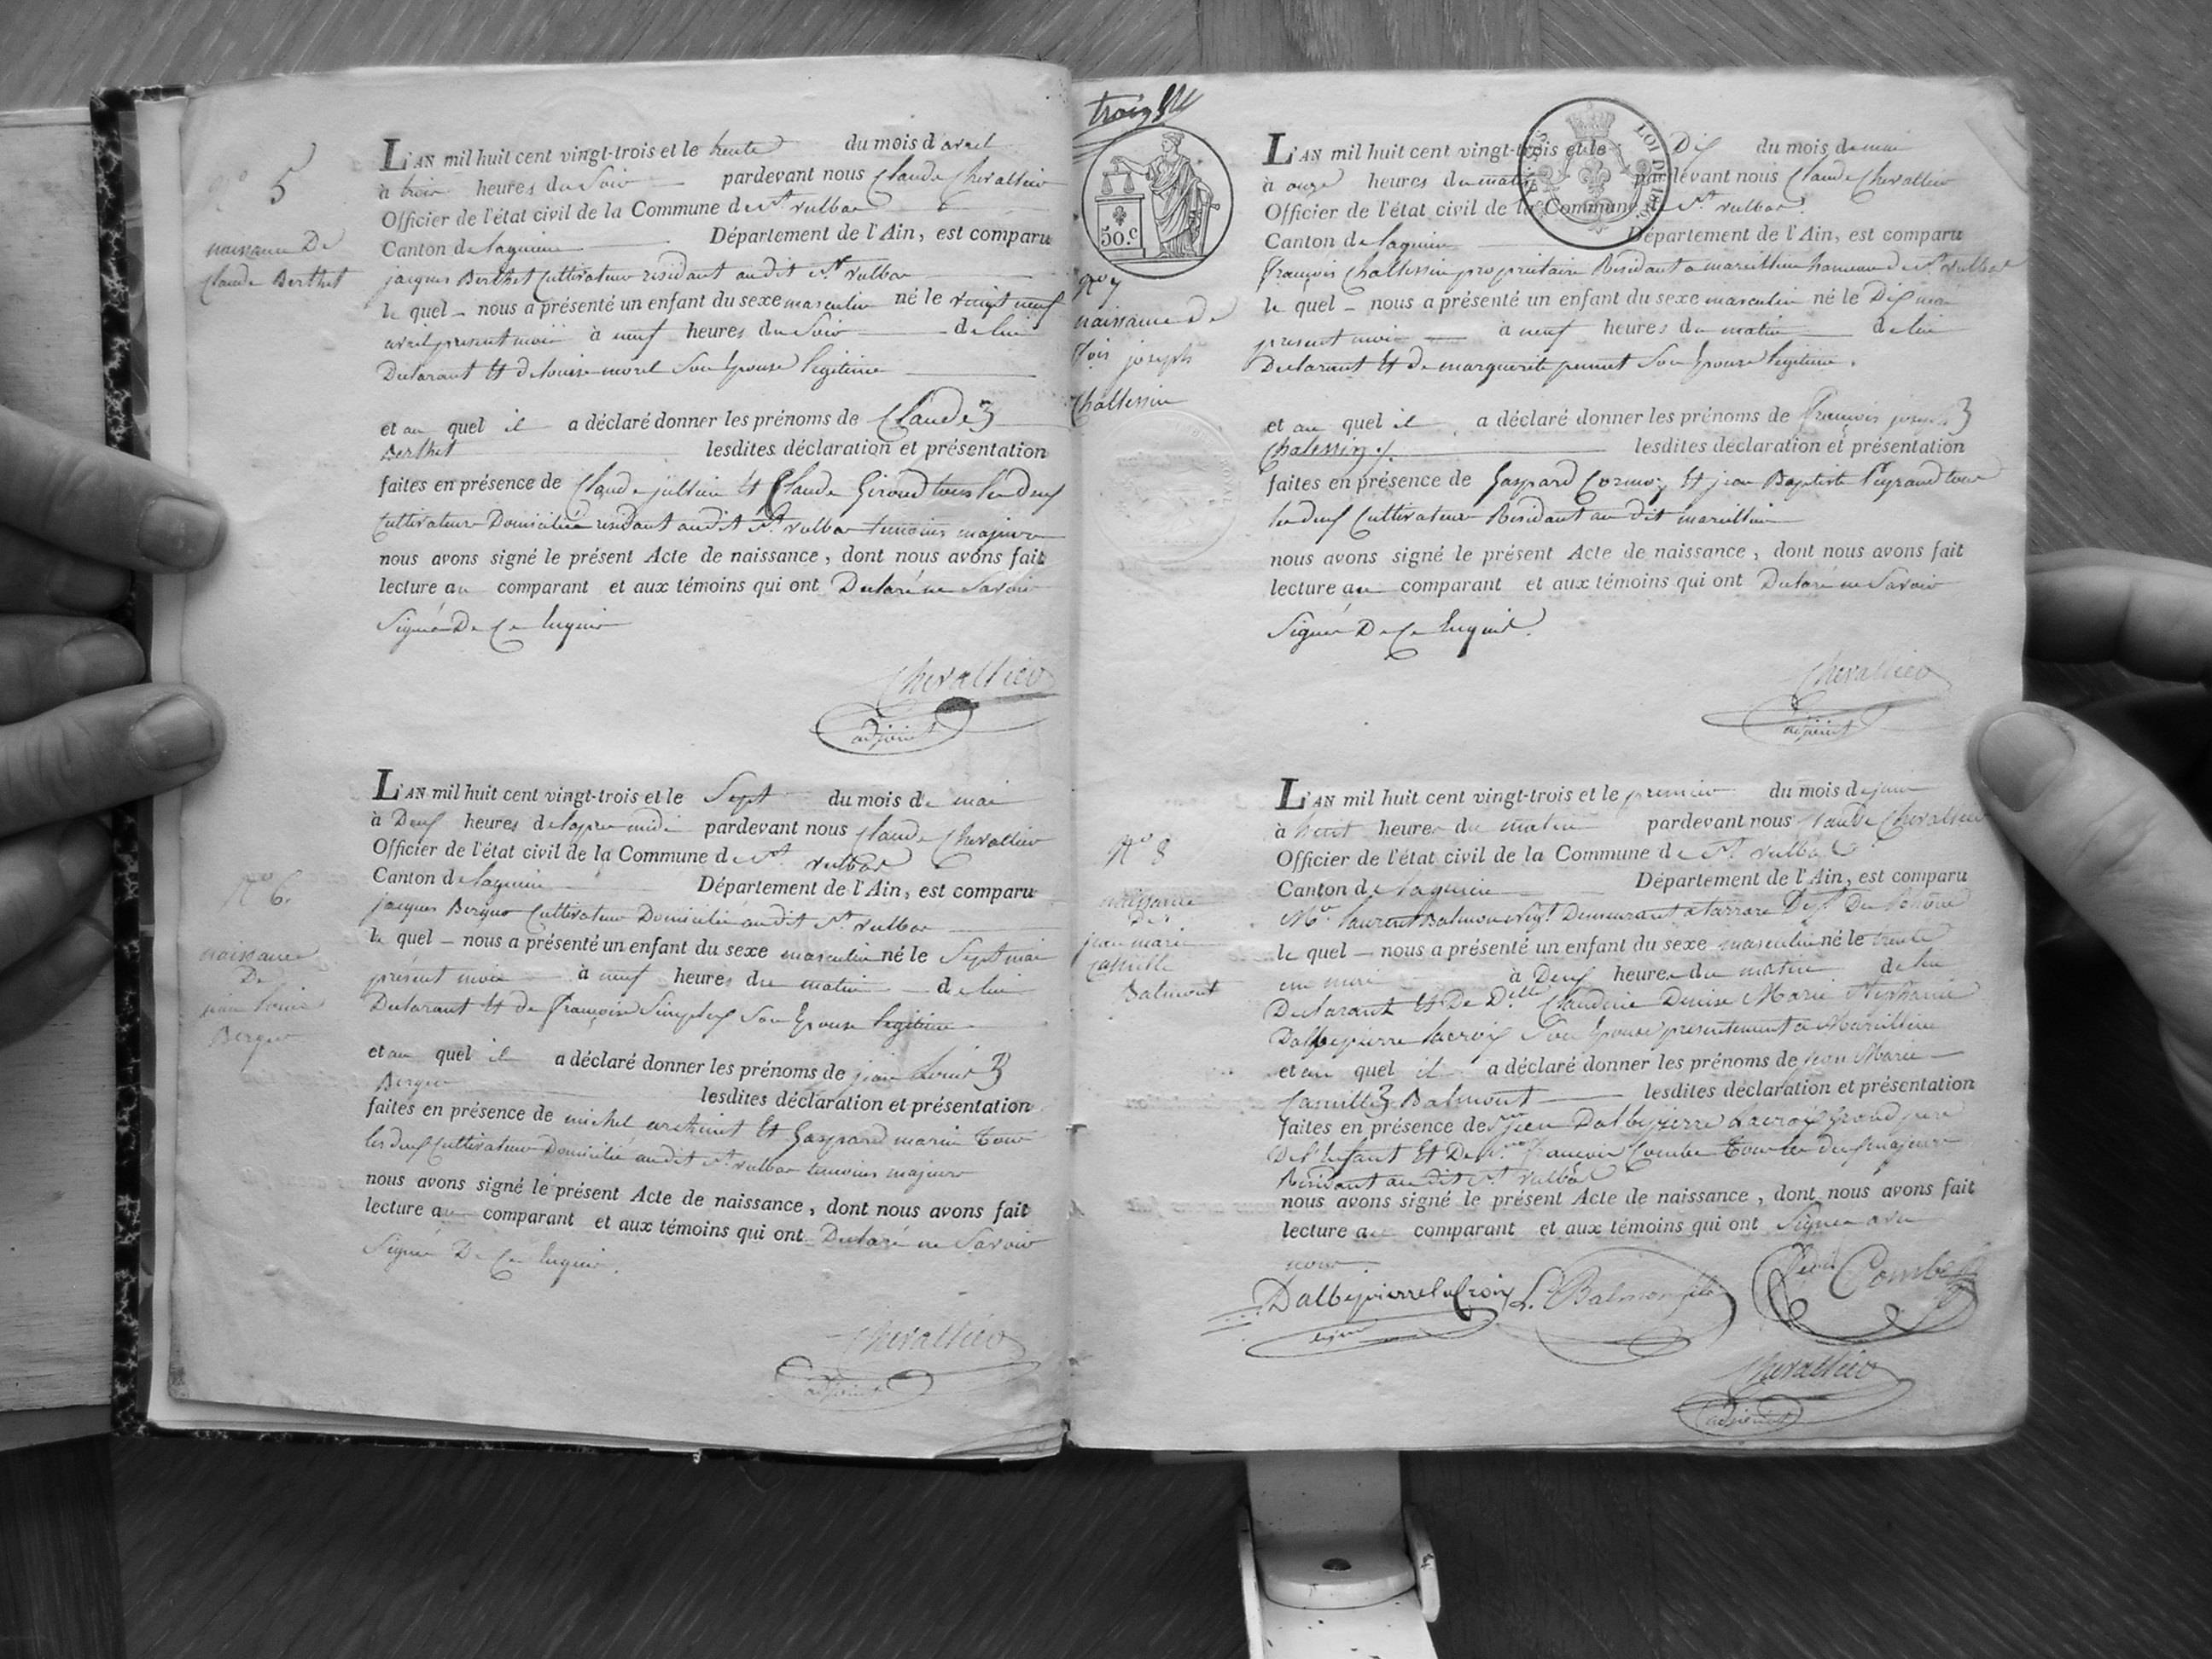 N.° 5
naissance De
Claude Berthet
L'AN mil huit cent vingt-trois et le trente du mois d'avril
à trois heures du Soir pardevant nous Claude Chevallier
Officier de l'état civil de la Commune de St. vulbas
Canton de lagnieu Département de l'Ain, est comparu
jacques Berthet Cultivateur residant audit St vulbas
le quel nous a présenté un enfant du sexe masculin né le vingt neuf
avril present mois à neuf heures du Soir de lui
Declarant Et de louise morel Son Epouse legitime
et au quel il a déclaré donner les prénoms de Claude
Berthet lesdites déclaration et présentation
faites en présence de Claude jullien Et Claude Giroud tous les deux
Cultivateurs Domiciliés residant audit St. vulbas temoins majeurs
nous avons signé le présent Acte de naissance, dont nous avons fait
lecture au comparant et aux témoins qui ont Declaré ne Savoir
Signé De Ce Enquis
Chevallier
adjoint
N.° 6.
naissance
De
jean Louis
Berger
L'AN mil huit cent vingt-trois et le Sept du mois de mai
à Deux heures de lapres midi pardevant nous Claude Chevallier
Officier de l'état civil de la Commune de St. vulbas
Canton de lagnieu Département de l'Ain, est comparu
jacques Berger Cultivateur Domicilié audit St. vulbas
le quel nous a présenté un enfant du sexe masculin né le Sept mai
présent mois à neuf heures du matin de lui
Declarant Et de françoise Simplex Son Epouse legitime
et au quel il a déclaré donner les prénoms de jean Louis
Berger lesdites déclaration et présentation
faites en présence de michel Et Gaspard marin tous
les deux Cultivateurs Domicilié audit St. vulbas temoins majeurs
nous avons signé le présent Acte de naissance, dont nous avons fait
lecture au comparant et aux témoins qui ont Declaré ne Savoir
Signé De Ce Enquis.
Chevallier
adjoint
trois
50.c
LOI DE 1816.
N.° 7
naissance de
fois joseph
Chattessin
L'AN mil huit cent vingt-trois et le Dix du mois de mai
à onze heures du matin pardevant nous Claude Chevallier
Officier de l'état civil de la Commune de St. vulbas
Canton de lagnieu Département de l'Ain, est comparu
françois Chattessin proprietaire Residant a marcillieu hameau de St. vulbas
le quel nous a présenté un enfant du sexe masculin né le Dix mai
present mois à neuf heures du matin de lui
Declarant Et de marguerite Son Epouse legitime.
et au quel il a déclaré donner les prénoms de François joseph
Chatessin lesdites déclaration et présentation
faites en présence de Gaspard Cormoz Et jean Baptiste Peyraud tous
les deux Cultivateurs Residant au dit marcillieu
nous avons signé le présent Acte de naissance, dont nous avons fait
lecture au comparant et aux témoins qui ont Declaré ne Savoir
Signé De Ce Enquis.
Chevallier
adjoint
N.° 8
naissance
De
jean marie
Camille
Balmont
L'AN mil huit cent vingt-trois et le premier du mois de juin
à huit heures du matin pardevant nous Claude Chevallier
Officier de l'état civil de la Commune de St. vulbas
Canton de lagnieu Département de l'Ain, est comparu
Mr. laurent Balmon Negt. Demeurant a tarrare Dept. Du Rhône
le quel nous a présenté un enfant du sexe masculin né le trente
un mai à Deux heures du matin de lui
Declarant Et De Delle Claudine Denise Marie Stephanie
Dalbepierre lacroix Son Epouse presentement a Marcillieu
et au quel il a déclaré donner les prénoms de Jean Marie
Camille Balmont lesdites déclaration et présentation
faites en présence de Jean Dalbepierre Lacroix Grand pere
De l'Enfant Et De françois Combe tous les deux majeurs
Residant audit St. vulbas
nous avons signé le présent Acte de naissance, dont nous avons fait
lecture au comparant et aux témoins qui ont Signé avec
nous
DalbepierreLaCroix L. Balmon fils Combe
Chevallier
adjoint